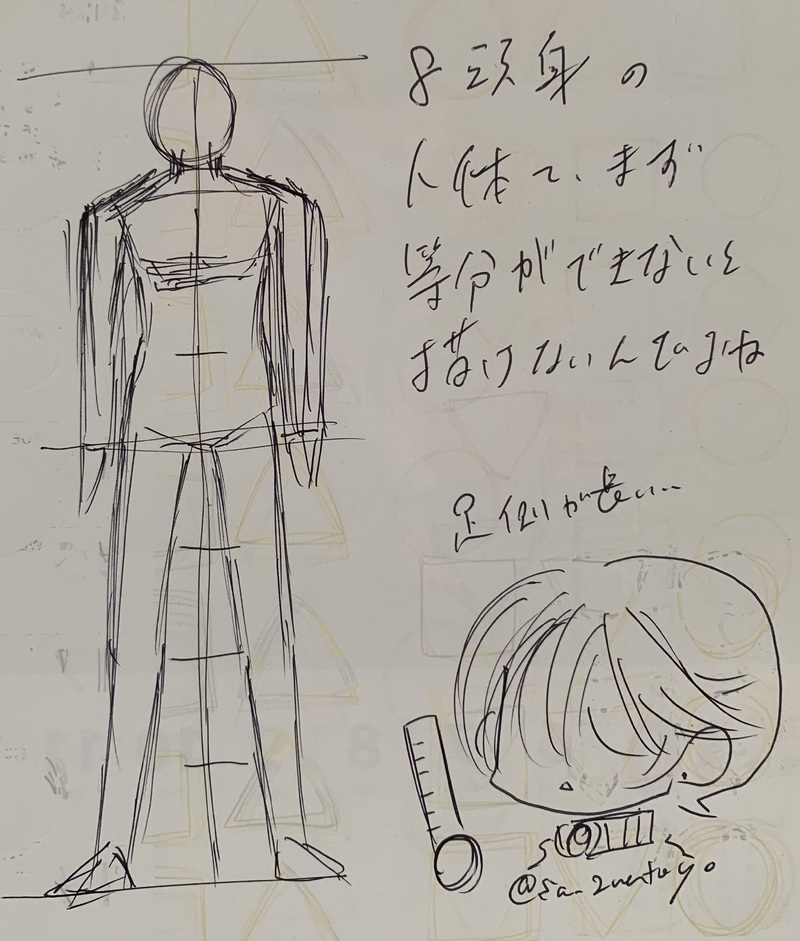 8頭身の
人体て、まず
等分ができないと
描けないんですよね
足側が長い…